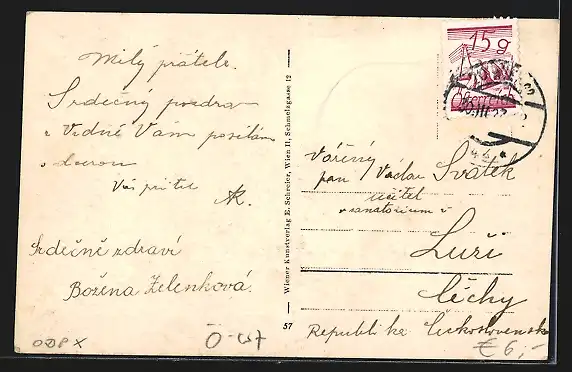 Milý příteli.
Srdečný pozdrav
z Vídně Vám posílám
s dcerou
Váš přítel
Srdečně zdraví
Božena Zelenková.
Ö-257
ODPX
Wiener Kunstverlag E. Schreier, Wien II, Schmelzgasse 12
57
15 g
Österreich
Vážený
pan Václav Svátek
učitel
v sanatorium v
Luži
Čechy
Republika Československ
€ 6,-